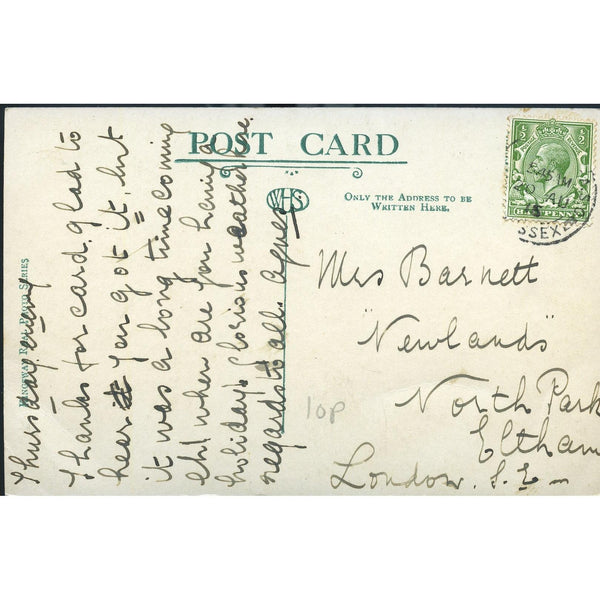 POST CARD
WHS
ONLY THE ADDRESS TO BE
WRITTEN HERE.
KINGSWAY REAL PHOTO SERIES
Thursday eveng
Thanks for card, glad to
hear you got it, but
it was a long time coming
eh! when are you having
holidays Glorious weather here
regards to all. Agnes
Mrs Barnett
"Newlands"
North Park
Eltham
London. S.E
10p
½
½
HALF PENNY
AU
SSEX